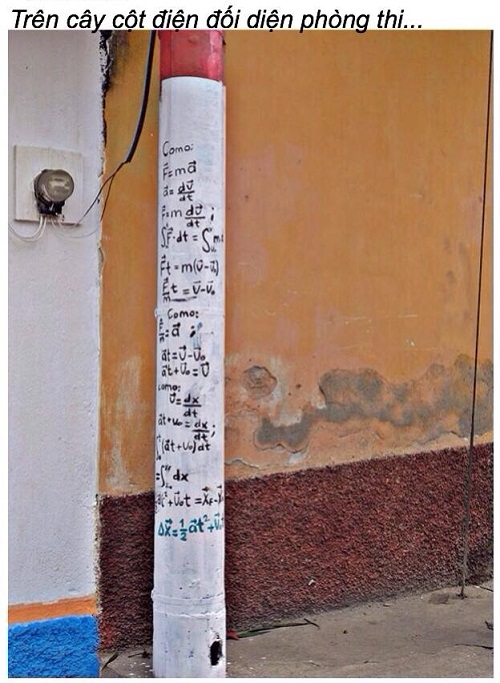 Trên cây cột điện đối diện phòng thi...
Como:
F⃗=ma⃗
a⃗=dv⃗/dt
F⃗=m dv⃗/dt;
∫F⃗·dt=∫m
F⃗t=m(v⃗-v⃗₀)
F⃗/m t=v⃗-v⃗₀
Como:
F⃗/m=a⃗;
a⃗t=v⃗-v⃗₀
a⃗t+v⃗₀=v⃗
como:
v⃗=dx⃗/dt
a⃗t+v₀=dx⃗/dt;
∫(a⃗t+v₀)dt
=∫dx
t²+v⃗₀t=x⃗F-x⃗
Δx⃗=½a⃗t²+v⃗